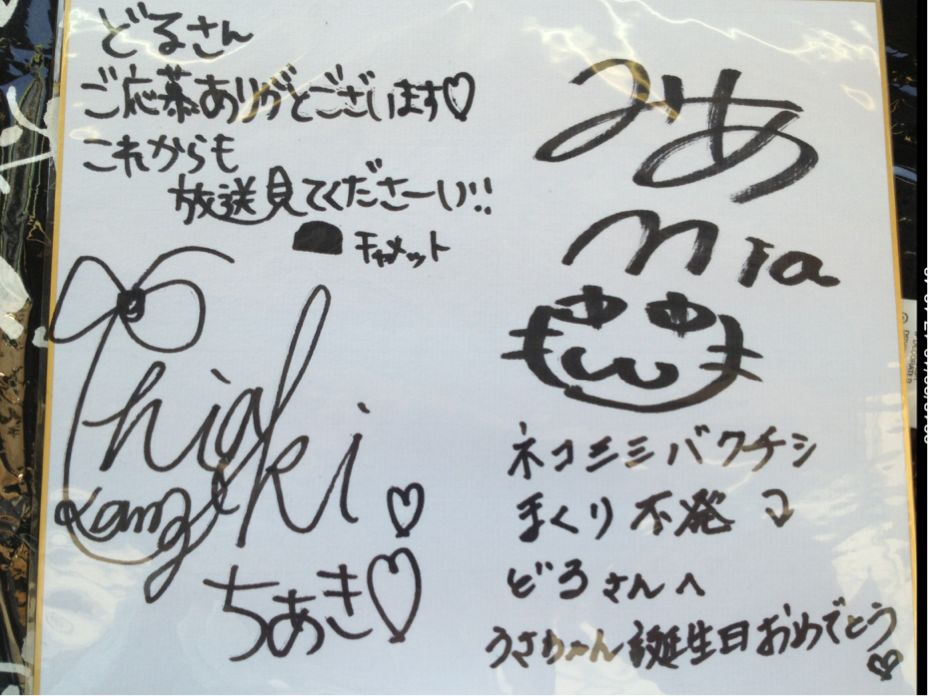 どるさん
ご応募ありがとうございます♡
これからも
放送見てくださーい!!
チャメット
Chiaki
ちあき♡
みあ
mia
ネコミミバクチシ
まくり不発
どるさんへ
うさわーん誕生日おめでとう♡